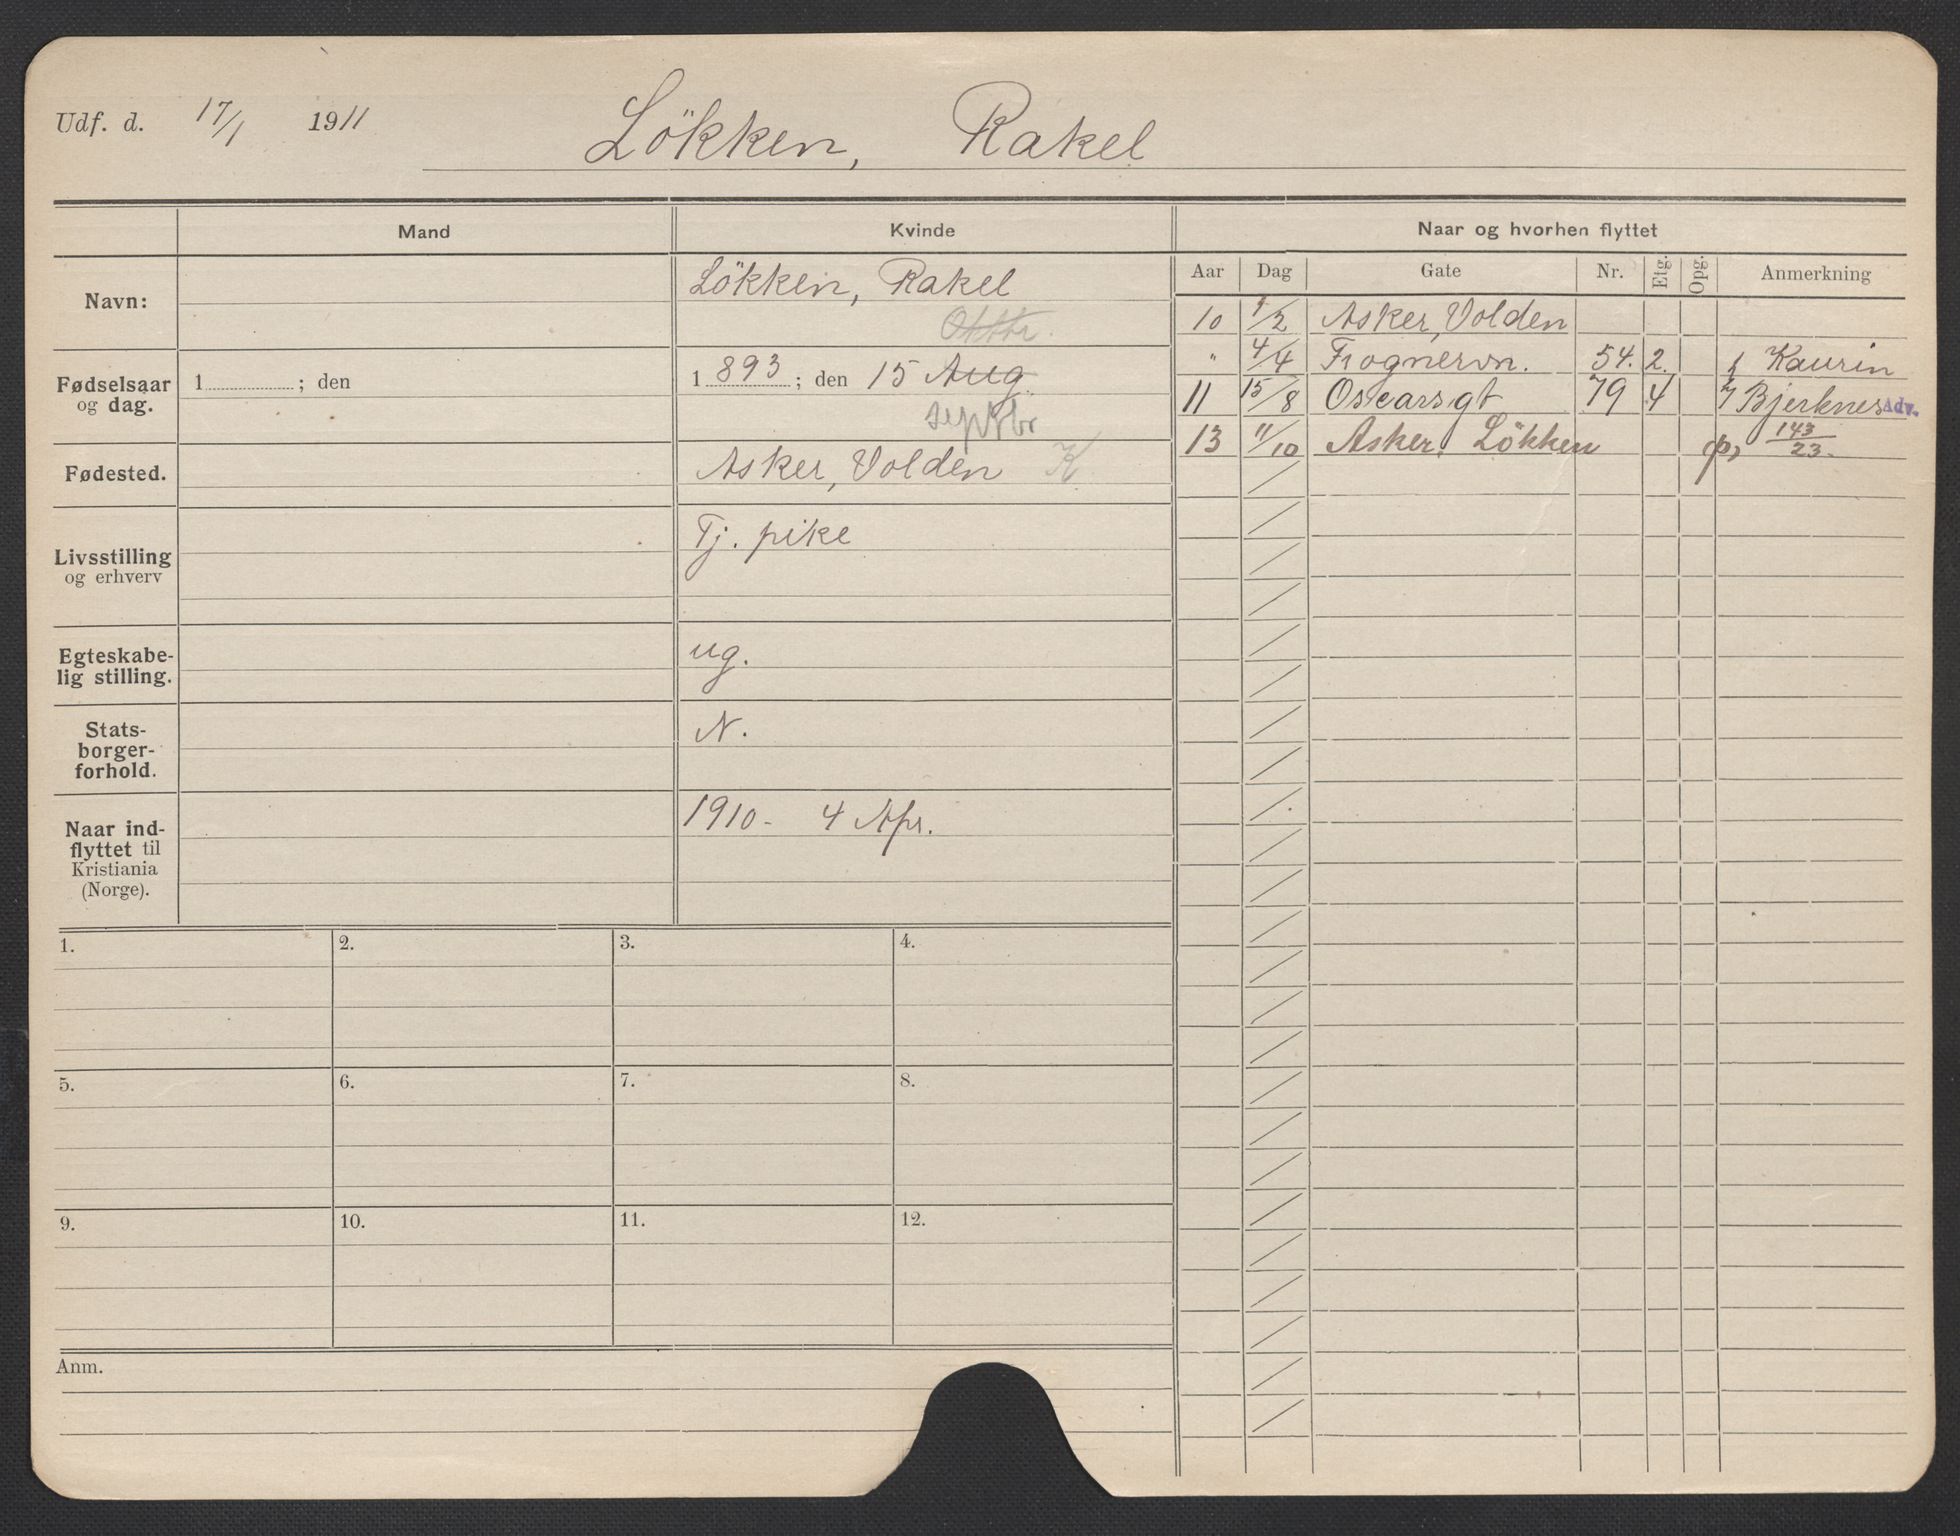 Udf. d. 17/1 1911
Lökken, Rakel
Mand
Kvinde
Naar og hvorhen flyttet
Aar Dag Gate Nr. Etg. Opg. Anmerkning
Navn:
Lökken, Rakel
Fødselsaar
og dag.
1 ; den
1 893 ; den 15 Aug
septbr
Fødested.
Asker, Volden K
Livsstilling
og erhverv
Tj. pike
Egteskabe-
lig stilling.
ug.
Stats-
borger-
forhold.
N.
Naar ind-
flyttet til
Kristiania
(Norge).
1910- 4 Apr.
10 1/2 Asker, Volden
" 4/4 Frognervn. 54. 2. Kaurin
11 15/8 Oscarsgt 79 4 Bjerknes Adv.
13 11/10 Asker, Lökken 143/23.
1. 2. 3. 4.
5. 6. 7. 8.
9. 10. 11. 12.
Anm.